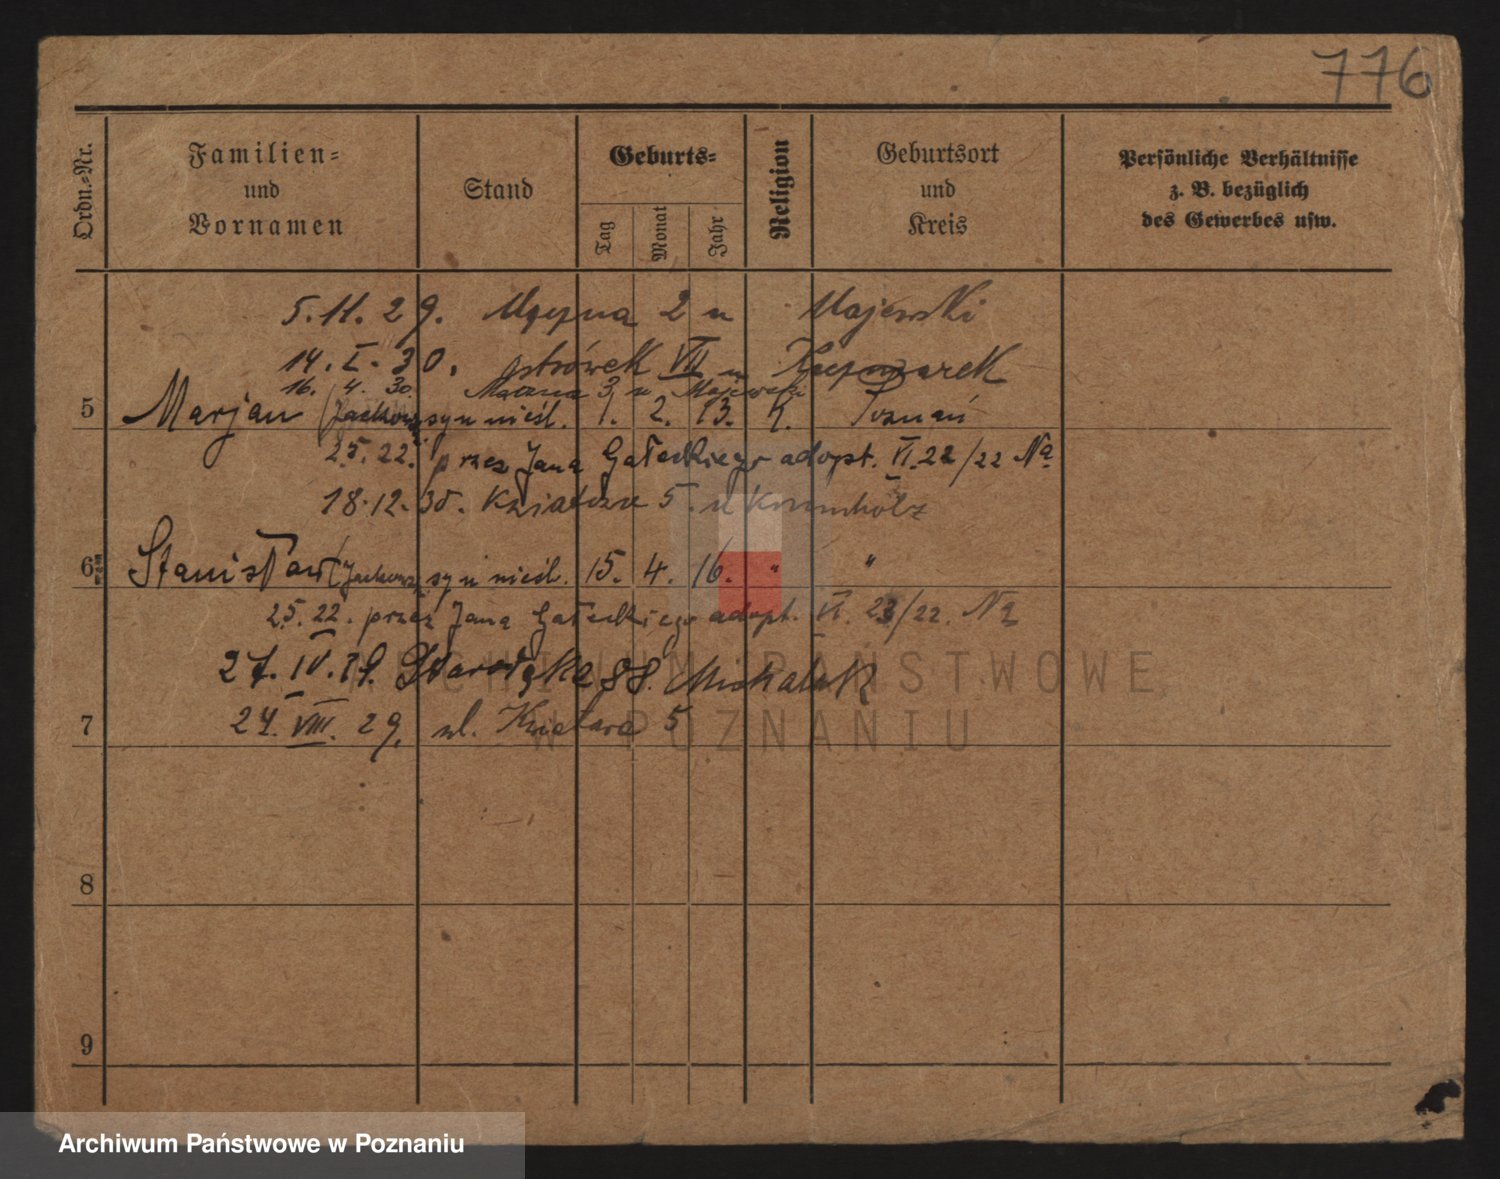 776
Ordn.-Nr.
Familien-
und
Vornamen
Stand
Geburts-
Tag
Monat
Jahr
Religion
Geburtsort
und
Kreis
Persönliche Verhältnisse
z. B. bezüglich
des Gewerbes usw.
5.11.29. 2 u Majewski
14.I.30. Ostrówek VII u
16. 4. 30. 3 u Majewski
5 Marjan syn nieśl. 1. 2. 13. Poznań
25.22. przez Jana Gałeckiego adopt. VI.22/22 Na
18.12.30. 5. u Krumholz
6 Stanisław syn nieśl. 15. 4. 16. " "
25.22. przez Jana Gałeckiego adopt. VI. 23/22. Na
27.IV. Starołęka 88. Michalak
7 24.VIII.29. ul. 5
8
9
ARCHIWUM PAŃSTWOWE
W POZNANIU
Archiwum Państwowe w Poznaniu